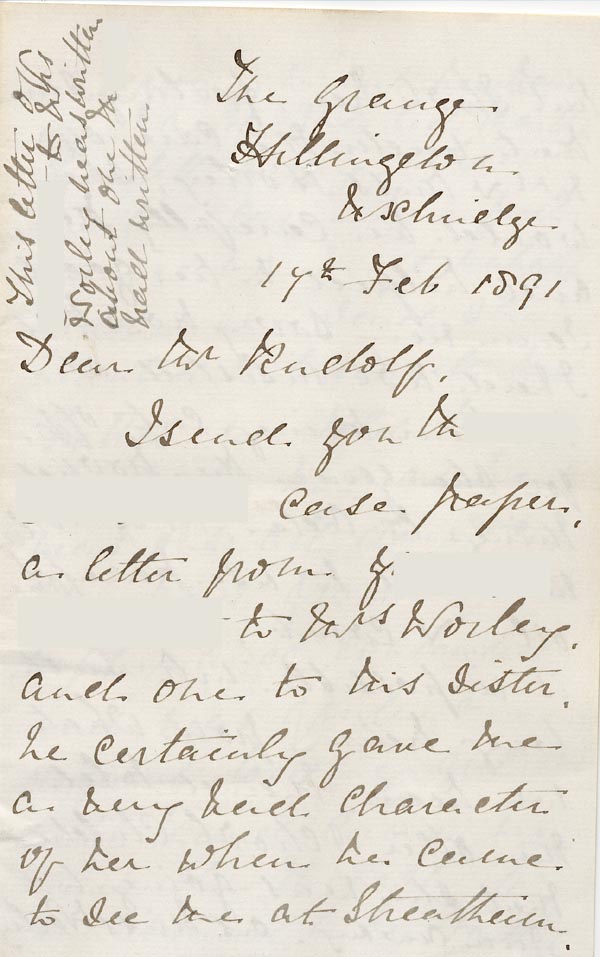 The Grange
Hillingdon
Uxbridge
17th Feb 1891
This letter of
to Mrs
Worley was written
about one he
had written
Dear Mr Rudolf,
I send you the
case paper,
a letter from
to Mrs Worley,
and one to his sister,
he certainly gave me
a very bad character
of her when he came
to see me at Streatham.